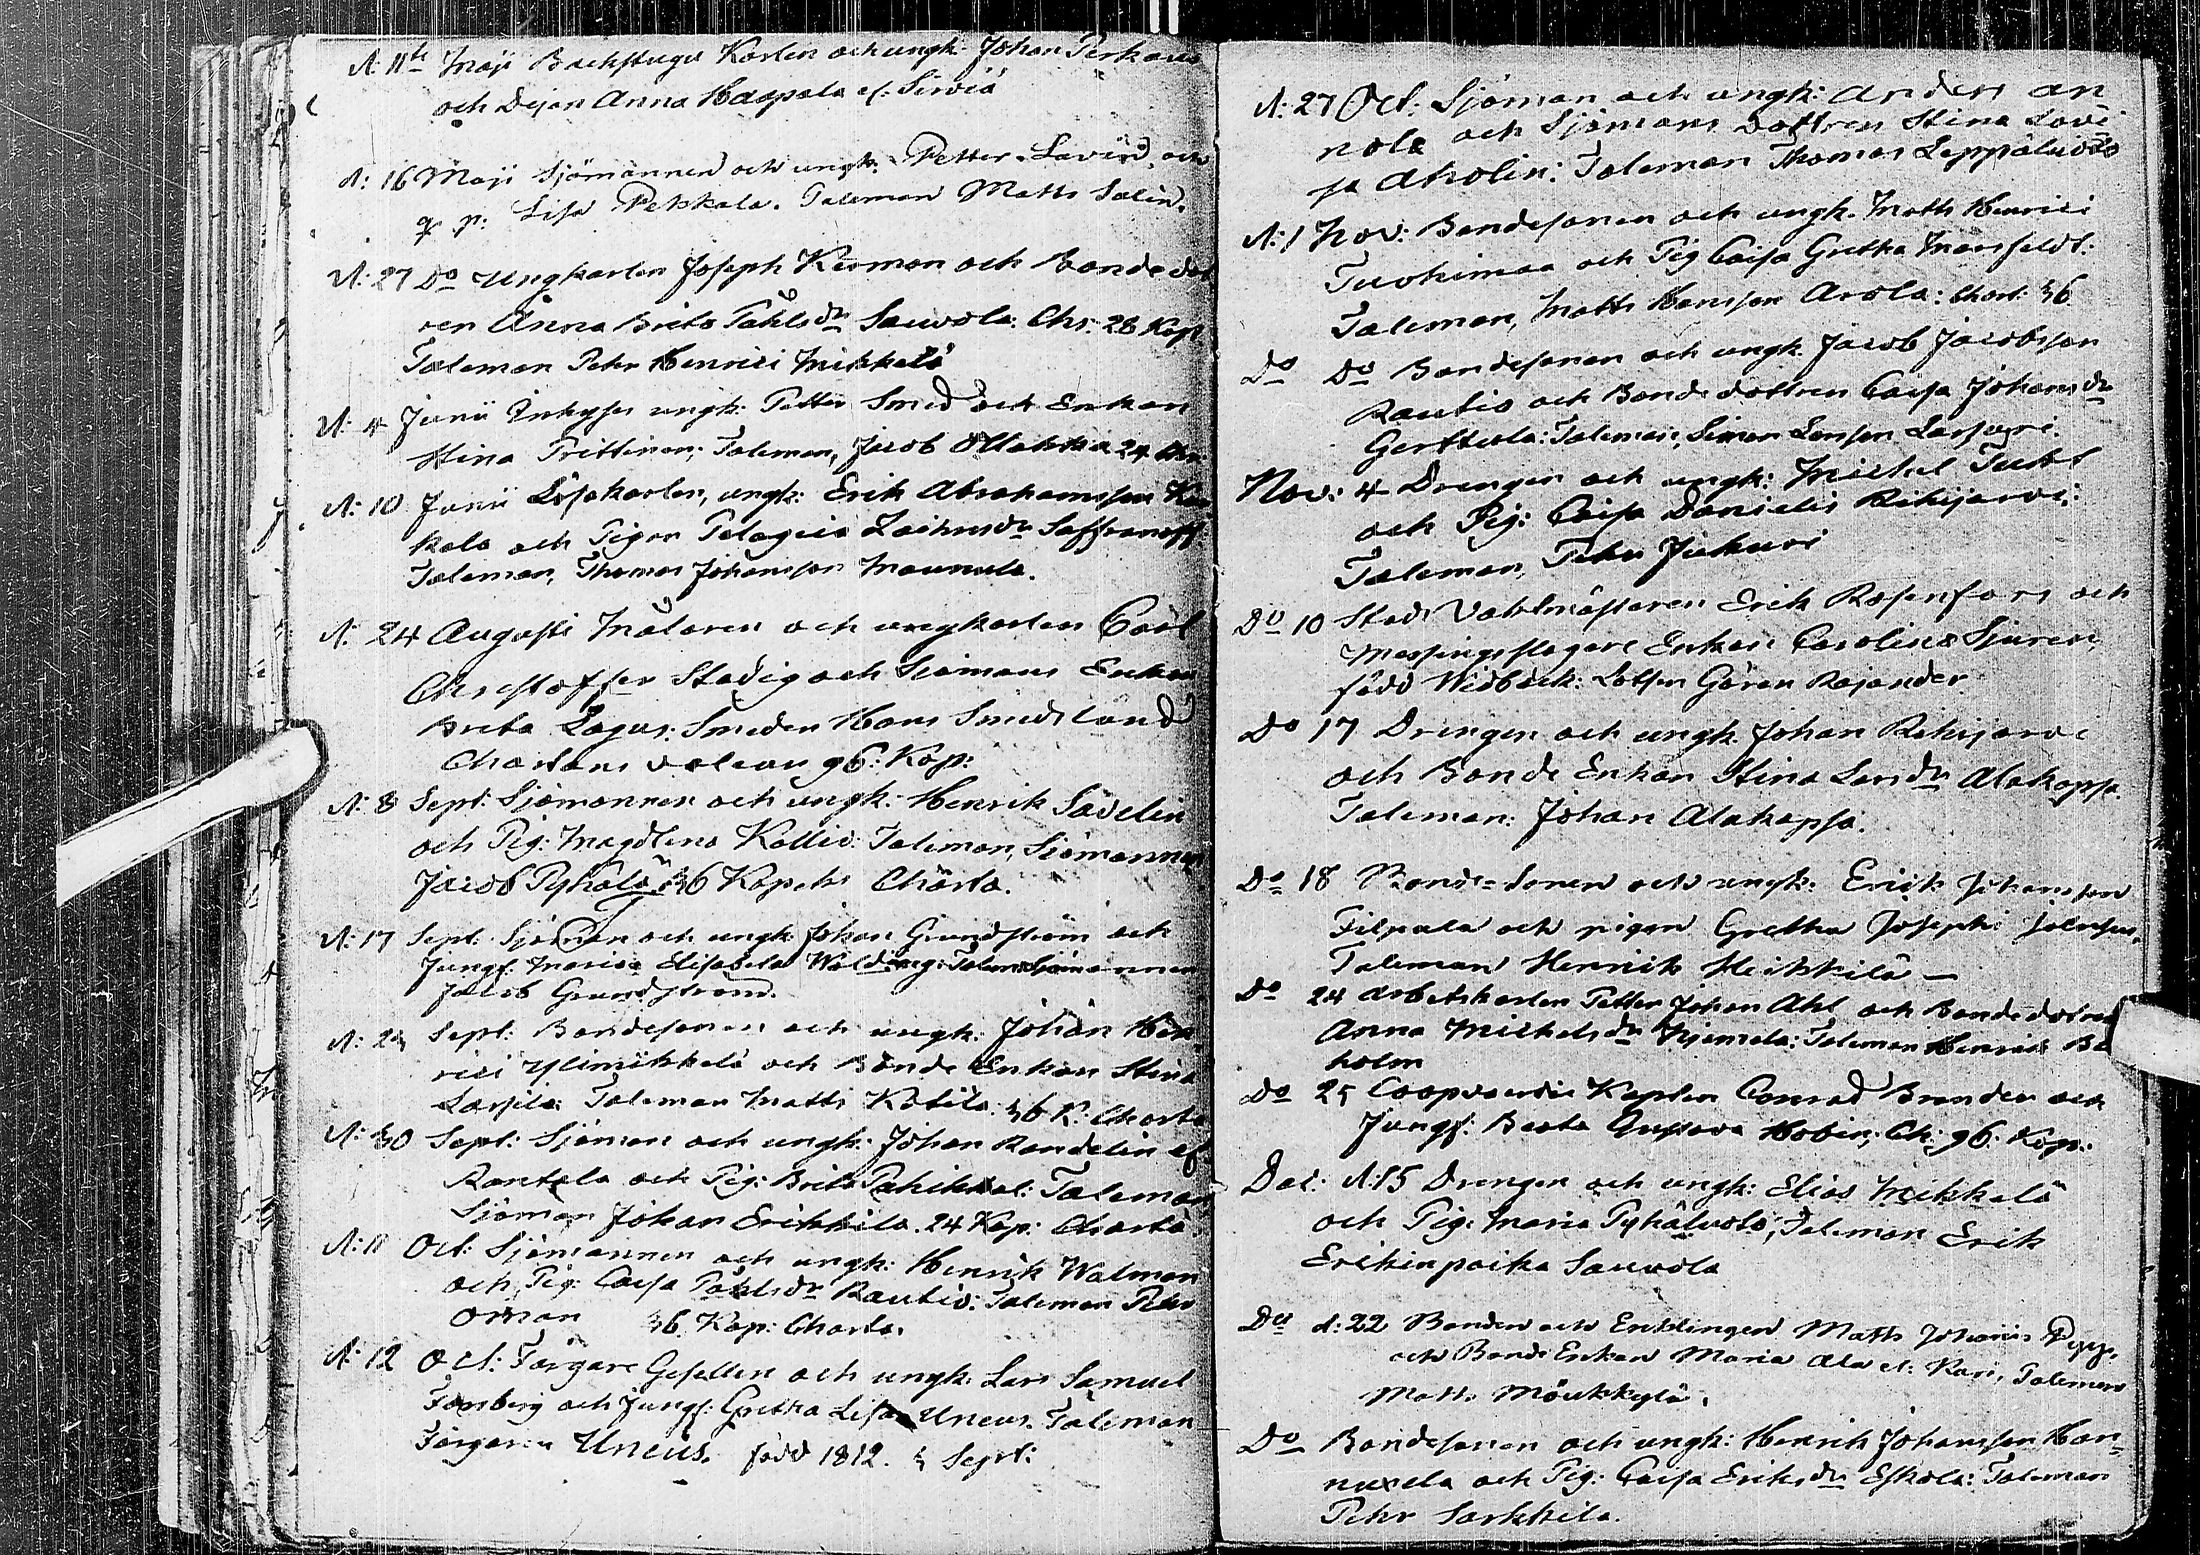 d: 11te Maji Backstugu Karlen och ungk: Johan Perkau
och Dejan Anna Haapala el: Sirviö
d: 16 Maji Sjömannen och ungk: Petter Lavin, och
q. p: Lisa Pekkala. Taleman Matts Salin.
d: 27 Do Ungkarlen Joseph Kesman och Bondedot
ren Anna Brita Påhlsdr Sauvola: Cht: 28 Kop
Taleman Pehr Henrici Mikkelä
d: 4 Junii ungk: Petter Smed och Enkan
Stina Prittinen; Taleman, Jacob Ollakka 24
d: 10 Junii Löskarlen, ungk: Erik Abrahamsson
kala och Pigan Pelagia Zachrisdr Saffranoff
Taleman, Thomas Johansson Maunula.
d: 24 Augusti Målaren och ungkarlen Carl
Christoffer Stadig och Sjömans Enkan
Brita Lagus: Smeden Hans Smedslund
Chartans valeur 96: Kop:
d: 8 Sept: Sjömannen och ungk: Henrik Sävelin
och Pig: Magdlena Kallio: Taleman, Sjömannen
Jacob Pyhälä: 36 Kopek: Charta.
d: 17 Sept: Sjöman och ungk: Johan Grundström och
Jungf: Maria Elisabeta Walding: Talem: Sjömannen
Jacob Grundström.
d: 24 Sept: Bondesonen och ungk: Johan Hen
rici Ylimikkelä och Bonde Enkan Stina
Larsila: Taleman Matts Kotila 36 K: Charta
d: 30 Sept: Sjöman och ungk: Johan Randelin el:
Rantala och Pig: Brita Pahikkal: Taleman
Sjöman Johan Erikkila. 24 Kop: Charta:
d: 11 Oct: Sjömannen och ungk: Henrik Walman
och Pig: Caisa Påhlsdr Rautio: Taleman Pehr
Oman 36 Kop: Charta.
d: 12 Oct: Färgare Gesellen och ungk: Lars Samuel
Forsberg och Jungf: Gretha Lisa Uneus. Taleman
Färgaren Uneus. född 1812. 5 Sept:
d: 27 Oct: Sjöman och ungk: Anders An
nola och Sjömans dottren Stina Lovi
sa Aholin: Taleman Thomas Leppäluoto
d: 1 Nov: Bondesonen och ungk. Matts Henrici
Tuohimaa och Pig Caisa Gretha Mansfeldt:
Taleman, Matts Hansson Arola: Chart: 36
Do Do Bondesonen och ungk. Jacob Jacobsson
Rautio och Bonde dottren Caisa Johansdr
Gerttula: Taleman, Simon Larsson
Nov: 4 Drengen och ungk: Michel
och Pig: Caisa Danielis Rekijarvi:
Taleman, Pehr Jukuri
Do 10 Stads Vaktmästaren Erik Rosenfors och
Messingsslagare Enkan Carolina
född Widbäck: Lotsen Göran Rajander
Do 17 Drengen och ungk Johan Rekijarvi
och Bonde Enkan Stina Larsdr Alakopsa
Taleman: Johan Alakopsa.
Do 18 Bonde-Sonen och ungk: Erick Johansson
Filpala och pigan Gretha Josephi
Taleman Henrik Heikkilä —
Do 24 Arbetskarlen Petter Johan Ahl och Bondedotren
Anna Mickelsdr Niemela: Taleman Henrik
holm
Do 25 Coopvaerdie Kapten Conrad Brander och
Jungf: Beata Gustava Hobin; Ch: 96: Kop:
Dec: d: 15 Drengen och ungk: Elias Mikkelä
och Pig: Maria Pyhäluoto; Taleman Erik
Erikinpoika Sauvola
Do d: 22 Bonden och Enklingen Matts Johanis
och Bonde Enkan Maria Ala el: Kari, Taleman
Matts Möukkylä.
Do Bondesonen och ungk: Henrik Johansson Han=
nuxela och Pig: Caisa Eriksdr Eskola: Taleman
Pehr Sarkkila.